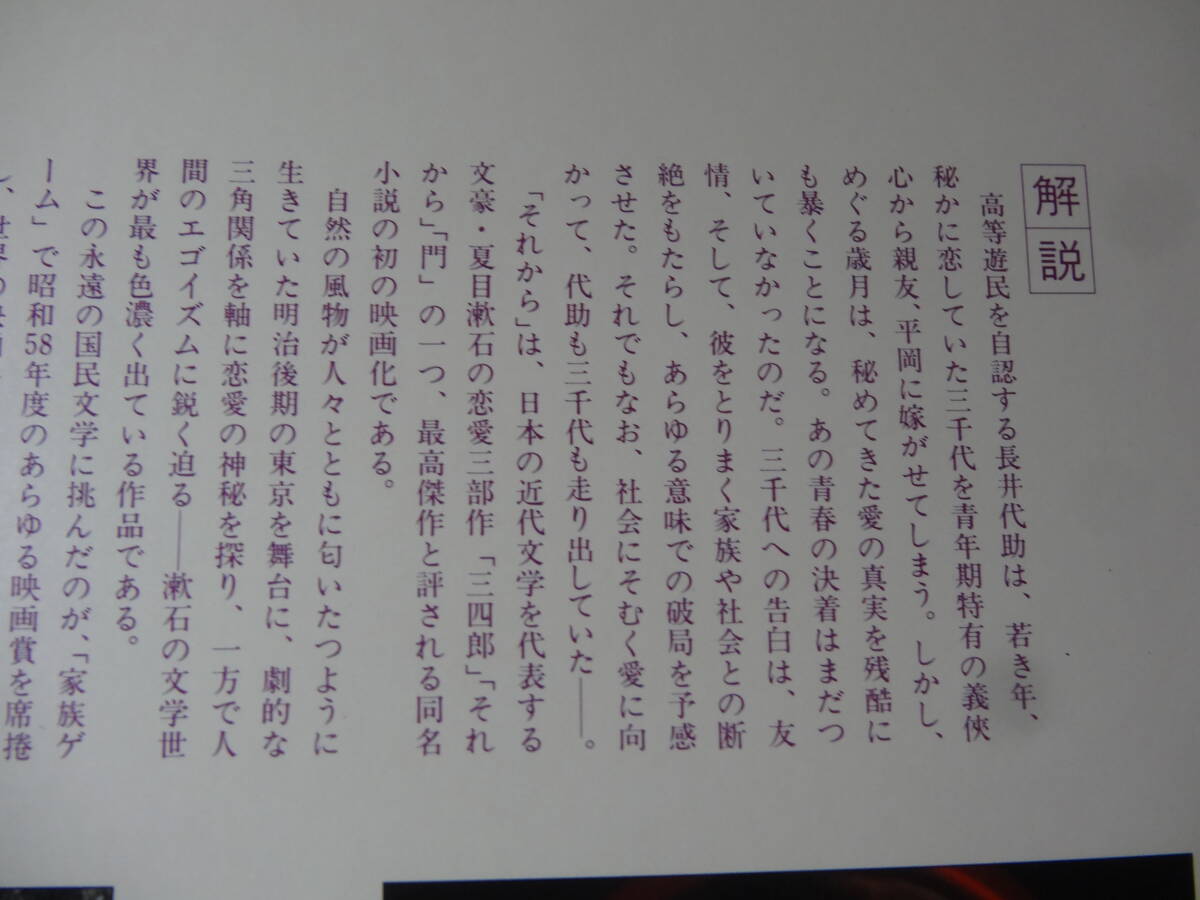 解説
高等遊民を自認する長井代助は、若き年、
秘かに恋していた三千代を青年期特有の義侠
心から親友、平岡に嫁がせてしまう。しかし、
めぐる歳月は、秘めてきた愛の真実を残酷に
も暴くことになる。あの青春の決着はまだつ
いていなかったのだ。三千代への告白は、友
情、そして、彼をとりまく家族や社会との断
絶をもたらし、あらゆる意味での破局を予感
させた。それでもなお、社会にそむく愛に向
かって、代助も三千代も走り出していた——。
「それから」は、日本の近代文学を代表する
文豪・夏目漱石の恋愛三部作「三四郎」「それ
から」「門」の一つ、最高傑作と評される同名
小説の初の映画化である。
自然の風物が人々とともに匂いたつように
生きていた明治後期の東京を舞台に、劇的な
三角関係を軸に恋愛の神秘を探り、一方で人
間のエゴイズムに鋭く迫る——漱石の文学世
界が最も色濃く出ている作品である。
この永遠の国民文学に挑んだのが、「家族ゲ
ーム」で昭和58年度のあらゆる映画賞を席捲
し、世界の